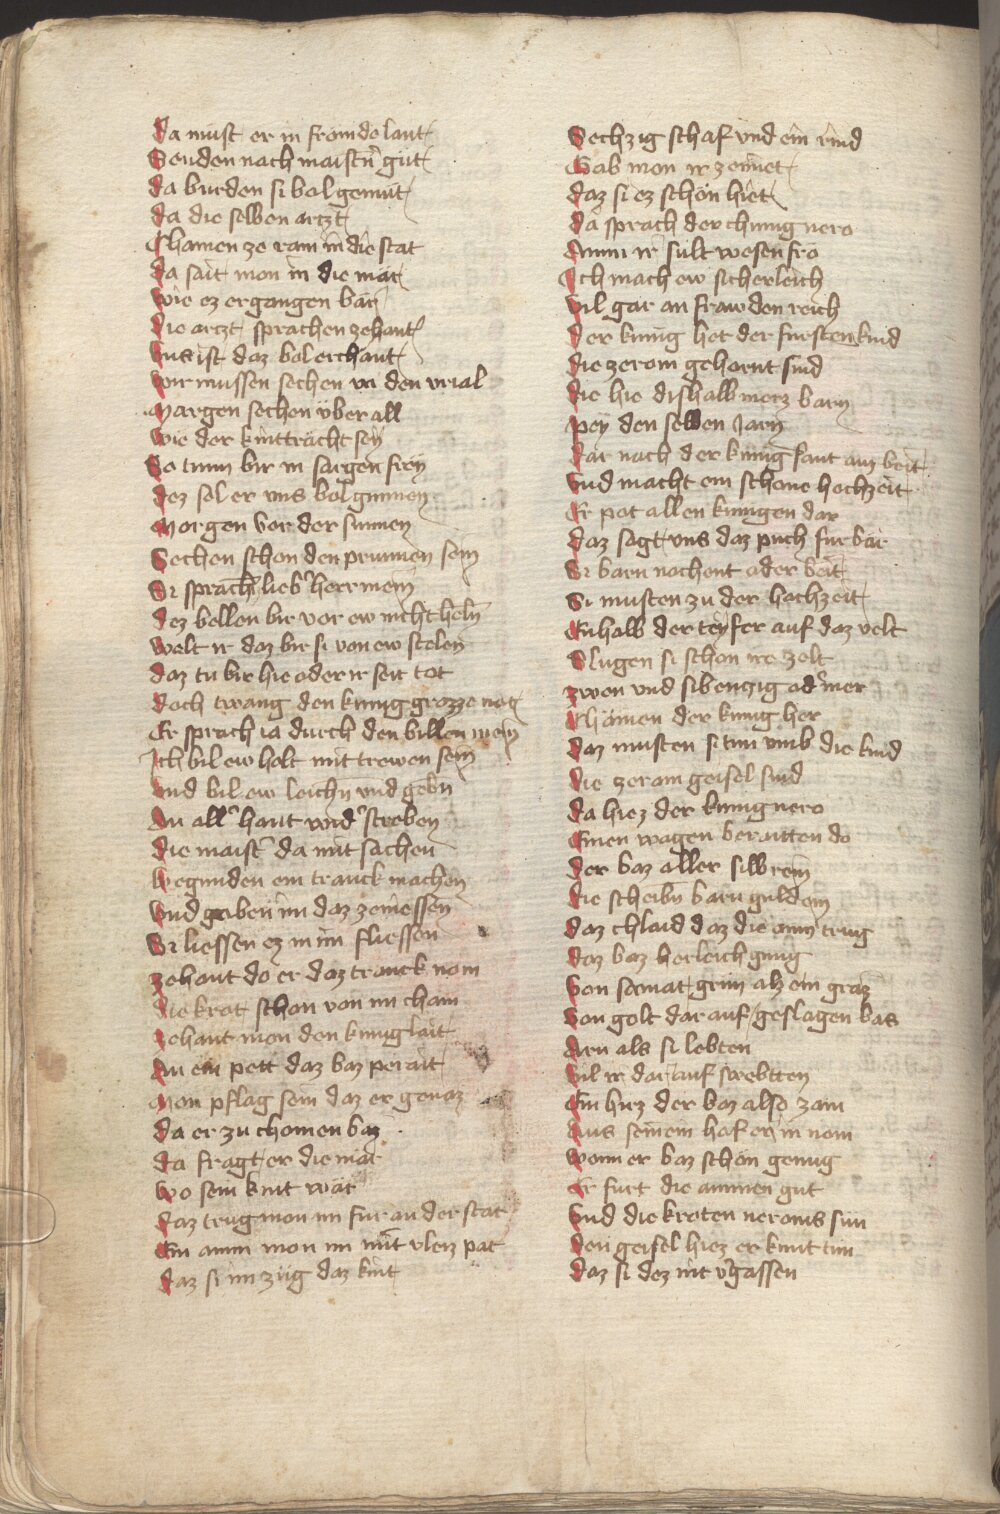 Da must er in fromde lant
Senden nach maistern gůt
Da burden si bol gemůt
Da die selben arczt
Chamen ze ram in die stat
Da sait mon in die mär
Wie ez ergangen bär
Die arczt sprachen zehant
Uns ist daz bol erchant
Wir mussen sechen in den urial
Margen sechen über all
Wie der kinttracht sey
So tunn bir in sargen frey
Dez sol er uns bol gunnen
Morgen vor der sunnen
Sechen schon den prunnen sein
Si sprach lieber herr mein
Dez bellen bir vor ew nicht heln
Welt ir daz bir si von ew stelen
Daz tů bir hie oder ir seit tot
Doch twang den kunig grozze not
Er sprach ia durch den billen mein
Ich bil ew holt mit trewen sein
Und bil ew leichn und gebn
An aller hant wider streben
Die maister da mit sachen
Begunden ein tranck machen
Und gaben im daz zemessen
Si liessen ez in im fliessen
Zehant do er daz tranck nom
Die krot schon von im cham
Zehant mon den kunig lait
An ein pett daz baz perait
Mon pflag sein daz er genaz
Da er zu chomen baz
Da fragt er die mär
Wo sein kint wär
Daz trug mon im fur an der stat
Ein amm mon im mit vleiz pat
Daz si im züg daz kint
Sechzig schaf und ein rind
Gab mon ir ze miet
Daz si ez schon hiet
Da sprach der chunig nero
Amm ir sult wesen fro
Ich mach ew sicherleich
Vil gar an frawden reich
Der kunig het der fursten kind
Die ze rom gehornt sind
Die hie dishalb merz barn
Pey den selben Jarn
Dar nach der kunig sant auz beit
Und macht ein schone hochzeit
Er pot allen kunigen dar
Daz sagt uns daz puch fur bar
Si barn nochent oder beit
Si musten zu der hochzeit
Enhalb der teyfer auf daz velt
Slugen si schon ire zelt
Zwen und sibenczig oder mer
Chämen der kunig her
Daz musten si tun umb die kind
Die ze ram geisel sind
Da hiez der kunig nero
Einen wagen beraitten do
Der baz aller silbrein
Die scheibn barn guldein
Daz chlaid daz die amm trug
Daz baz herleich genug
Von samat grün alz ein graz
Von golt dar auf geslagen bas
Arn als si lebten
Vil ir dar auf swebtten
Ein hirz der baz also zam
Aus seinem hof er in nom
Wonn er baz schon genug
Er furt die ammen gut
Und die kroten neronis sun
Den geisel hiez er kunt tun
Daz si dez nit vergassen